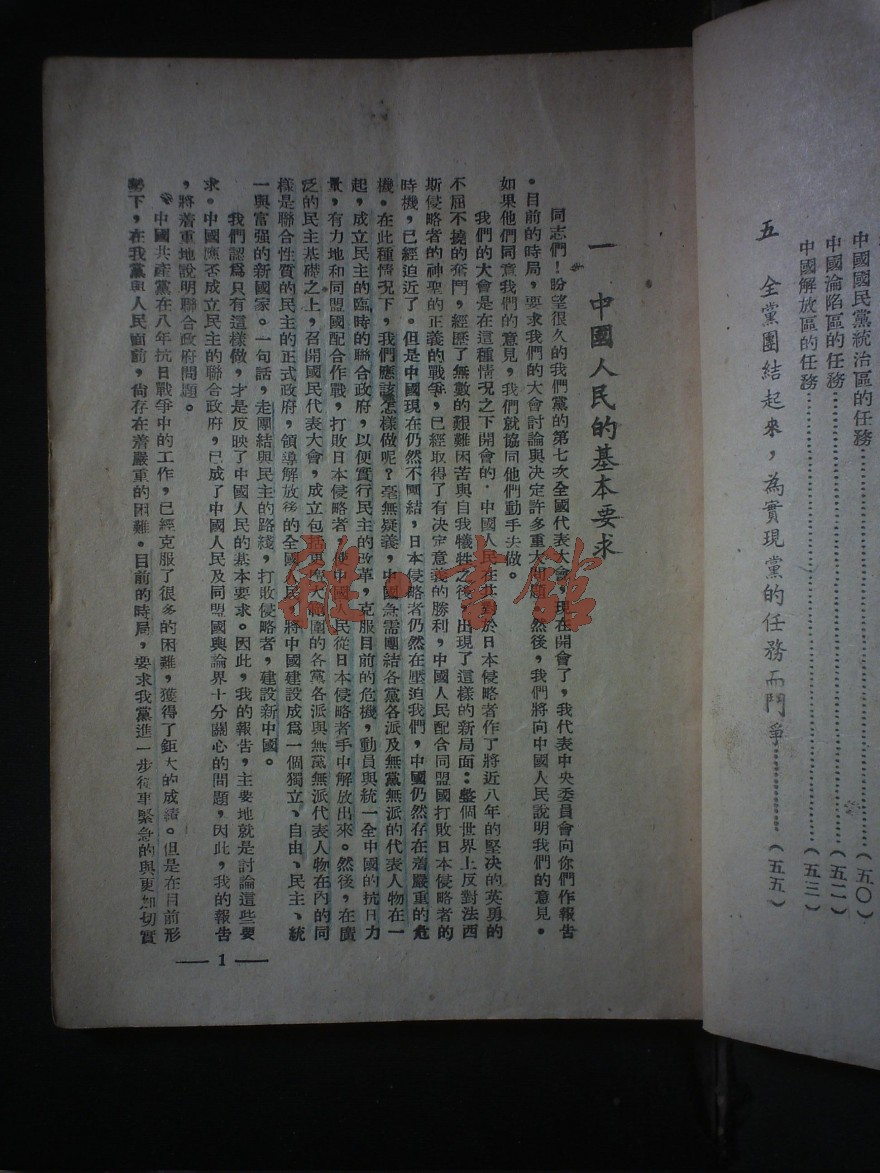 中國國民黨統治區的任務……………………(五〇)
中國淪陷區的任務……………………(五二)
中國解放區的任務……………………(五三)
五 全黨團結起來,為實現黨的任務而鬥爭……………(五五)
一 中國人民的基本要求
同志們!盼望很久的我們黨的第七次全國代表大會,現在開會了,我代表中央委員會向你們作報告
。目前的時局,要求我們的大會討論與決定許多重大問題,然後,我們將向中國人民說明我們的意見。
如果他們同意我們的意見,我們就協同他們動手去做。
我們的大會是在這種情況之下開會的:中國人民在其對於日本侵略者作了將近八年的堅決的英勇的
不屈不撓的奮鬥,經歷了無數的艱難困苦與自我犧牲之後,出現了這樣的新局面:整個世界上反對法西
斯侵略者的神聖的正義的戰爭,已經取得了有決定意義的勝利,中國人民配合同盟國打敗日本侵略者的
時機,已經迫近了。但是中國現在仍然不團結,日本侵略者仍然在壓迫我們,中國仍然存在着嚴重的危
機。在此種情況下,我們應該怎樣做呢?毫無疑義,中國急需團結各黨各派及無黨無派的代表人物在一
起,成立民主的臨時的聯合政府,以便實行民主的改革,克服目前的危機,動員與統一全中國的抗日力
量,有力地和同盟國配合作戰,打敗日本侵略者,使中國人民從日本侵略者手中解放出來。然後,在廣
泛的民主基礎之上,召開國民代表大會,成立包括更廣大範圍的各黨各派與無黨無派代表人物在內的同
樣是聯合性質的民主的正式政府,領導解放後的全國人民,將中國建設成爲一個獨立、自由、民主、統
一與富强的新國家。一句話,走團結與民主的路綫,打敗侵略者,建設新中國。
我們認爲只有這樣做,才是反映了中國人民的基本要求。因此,我的報告,主要地就是討論這些要
求。中國應否成立民主的聯合政府,已成了中國人民及同盟國輿論界十分關心的問題,因此,我的報告
,將着重地說明聯合政府問題。
中國共產黨在八年抗日戰爭中的工作,已經克服了很多的困難,獲得了鉅大的成績。但是在目前形
勢下,在我黨與人民面前,尙存在着嚴重的困難。目前的時局,要求我黨進一步從事緊急的與更加切實
— 1 —
雅·書館